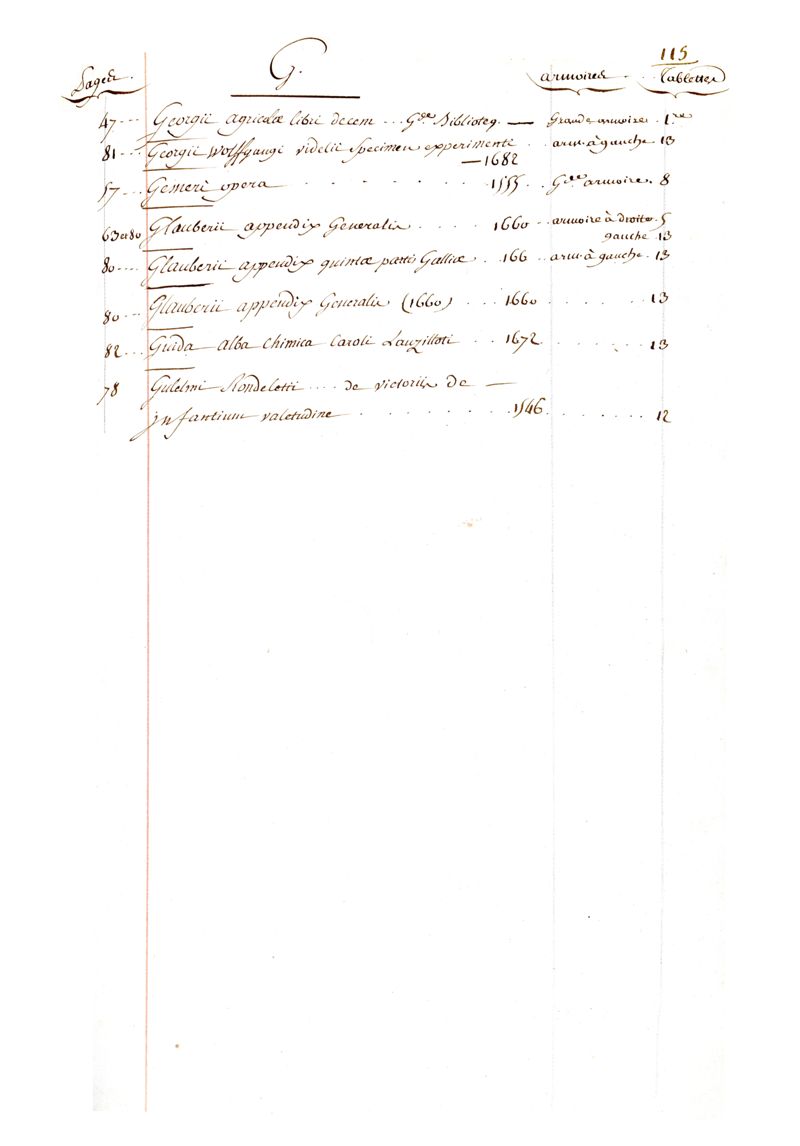 115
Pages. G. armoires Tablettes
47 Georgii agricolæ libri decem ... Gde Biblioteq. — Grande armoire. 1.re
81 Georgii Wolffgangi videlii Specimen experimenti arm. à gauche 13
— 1682
57 Gemeri opera 1555 Gde armoire. 8
63 et 80 Glauberii appendix Generalis 1660 armoire à droitte 5
gauche 13
80 Glauberii appendix quintæ partis Galliæ 166 arm. à gauche. 13
80 Glauberii appendix Generalis (1660) 1660 13
82 Guida alba Chimica Caroli Lauzilloti 1672 13
78 Gulelmi Rondeletti .... de victoriis de —
infantium valetudine 1546 12